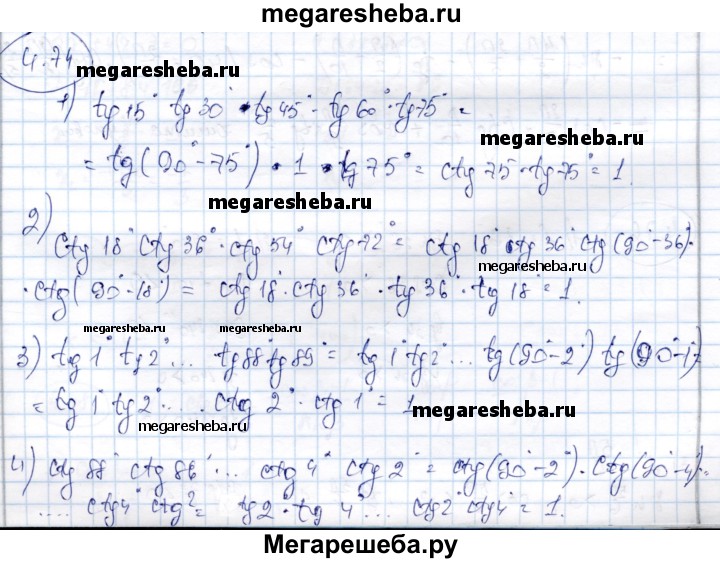 megaresheba.ru
4.74
megaresheba.ru
1) tg 15° tg 30° · tg 45° · tg 60° · tg 75° =
megaresheba.ru
= tg (90° - 75°) · 1 · tg 75° = ctg 75° · tg 75° = 1
megaresheba.ru
2) ctg 18° ctg 36° · ctg 54° ctg 72° = ctg 18° ctg 36° ctg (90° - 36) ·
megaresheba.ru
· ctg (90° - 18°) = ctg 18° · ctg 36° · tg 36° · tg 18° = 1.
megaresheba.ru megaresheba.ru
3) tg 1° tg 2° ... tg 88° tg 89° = tg 1° tg 2° ... tg (90° - 2°) tg (90° - 1°)
= tg 1° tg 2° ... ctg 2° · ctg 1° = 1
megaresheba.ru
megaresheba.ru
4) ctg 88° ctg 86° ... ctg 4° ctg 2° = ctg (90° - 2°) · ctg (90° - 4) ·
.... ctg 4° ctg 2° = tg 2 · tg 4° ... ctg 2° ctg 4° = 1.
megaresheba.ru
Мегарешеба.ру